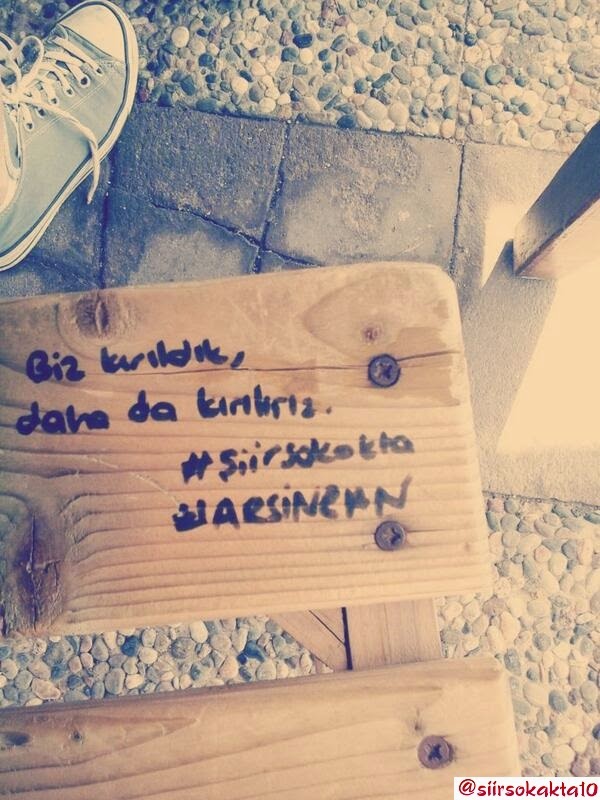 Biz kırıldık,
daha da kırılırız.
#şiirsokakta
@siirsokakta10